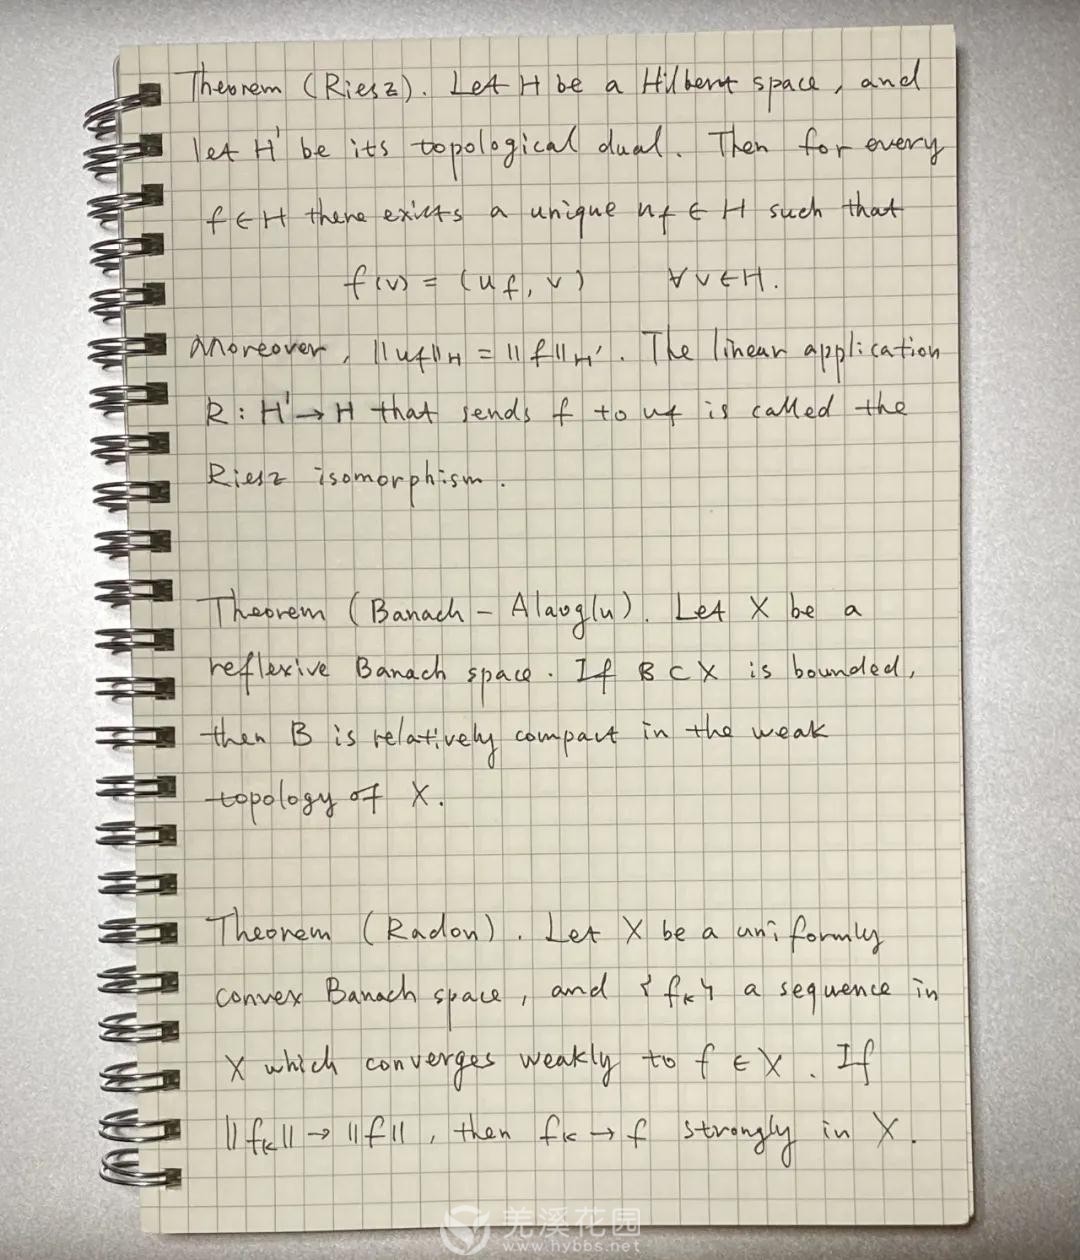 Theorem (Riesz). Let H be a Hilbert space, and
let H' be its topological dual. Then for every
f ∈ H there exists a unique u_f ∈ H such that
f(v) = (u_f, v) ∀ v ∈ H.
Moreover, ||u_f||_H = ||f||_H'. The linear application
R : H' → H that sends f to u_f is called the
Riesz isomorphism.
Theorem (Banach - Alaoglu). Let X be a
reflexive Banach space. If B ⊂ X is bounded,
then B is relatively compact in the weak
topology of X.
Theorem (Radon). Let X be a uniformly
convex Banach space, and {f_k} a sequence in
X which converges weakly to f ∈ X. If
||f_k|| → ||f||, then f_k → f strongly in X.
羌溪花园
www.hybbs.net